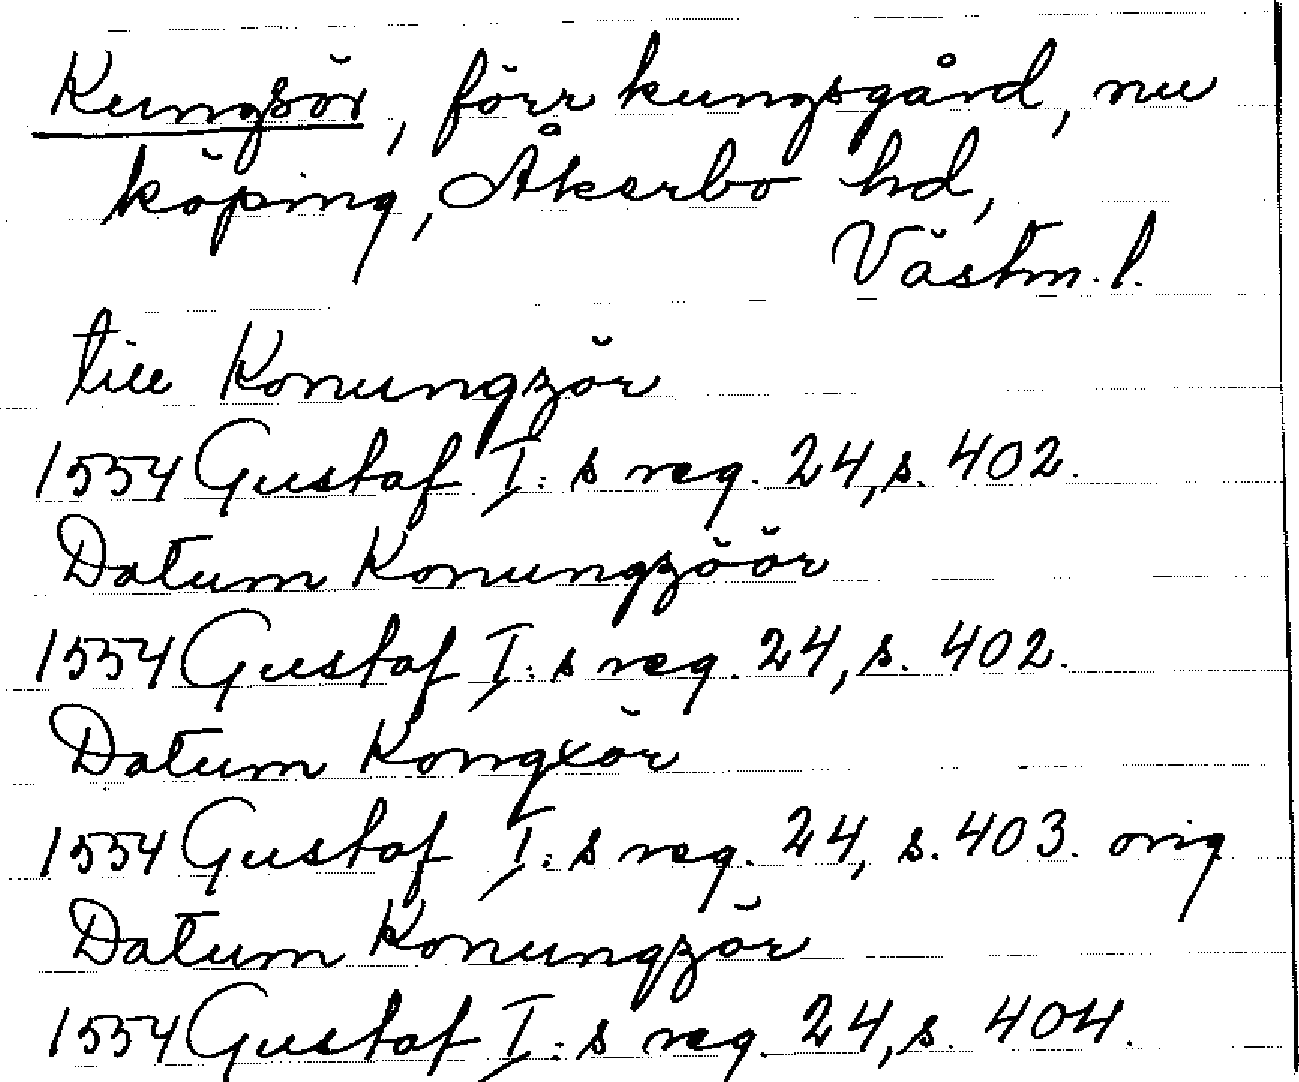 Kungsör, förr kungsgård, nu
köping, Åkerbo hd,
Västm. l.
till Konungzör
1554 Gustaf I:s reg. 24, s. 402.
Datum Konungzöör
1554 Gustaf I:s reg. 24, s. 402.
Datum Kongxör
1554 Gustaf I:s reg. 24, s. 403. orig
Datum Konungzör
1554 Gustaf I:s reg. 24, s. 404.